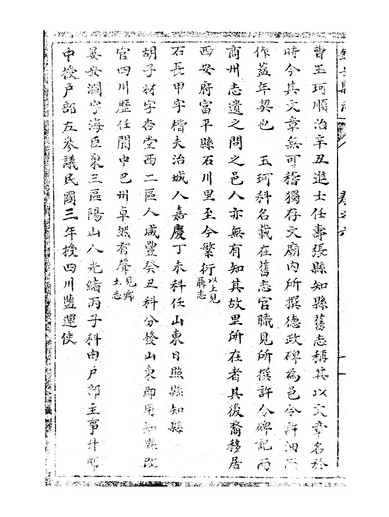 曹玉珂順治辛丑進士任壽張縣知縣舊志稱其以文章名於
時今其文章無可稽獨存文廟內所撰德政碑為邑令許洄而
作蓋年契也 玉珂科名載在舊志官職見所撰許令碑記而
商州志遺之問之邑人亦無有知其故里所在者其後裔移居
西安府富平縣石川里至今繁衍以上見聶志
石長甲字楷夫治城人嘉慶丁未科任山東日照縣知縣
胡子材字杏堂西二區人咸豐癸丑科分發山東即用知縣改
官四川歷任閬中巴州卓然有聲見鄉土志
晏安瀾字海臣東三區陽山人光緒丙子科由戶部主事升
中授戶部左參議民國三年授四川鹽運使